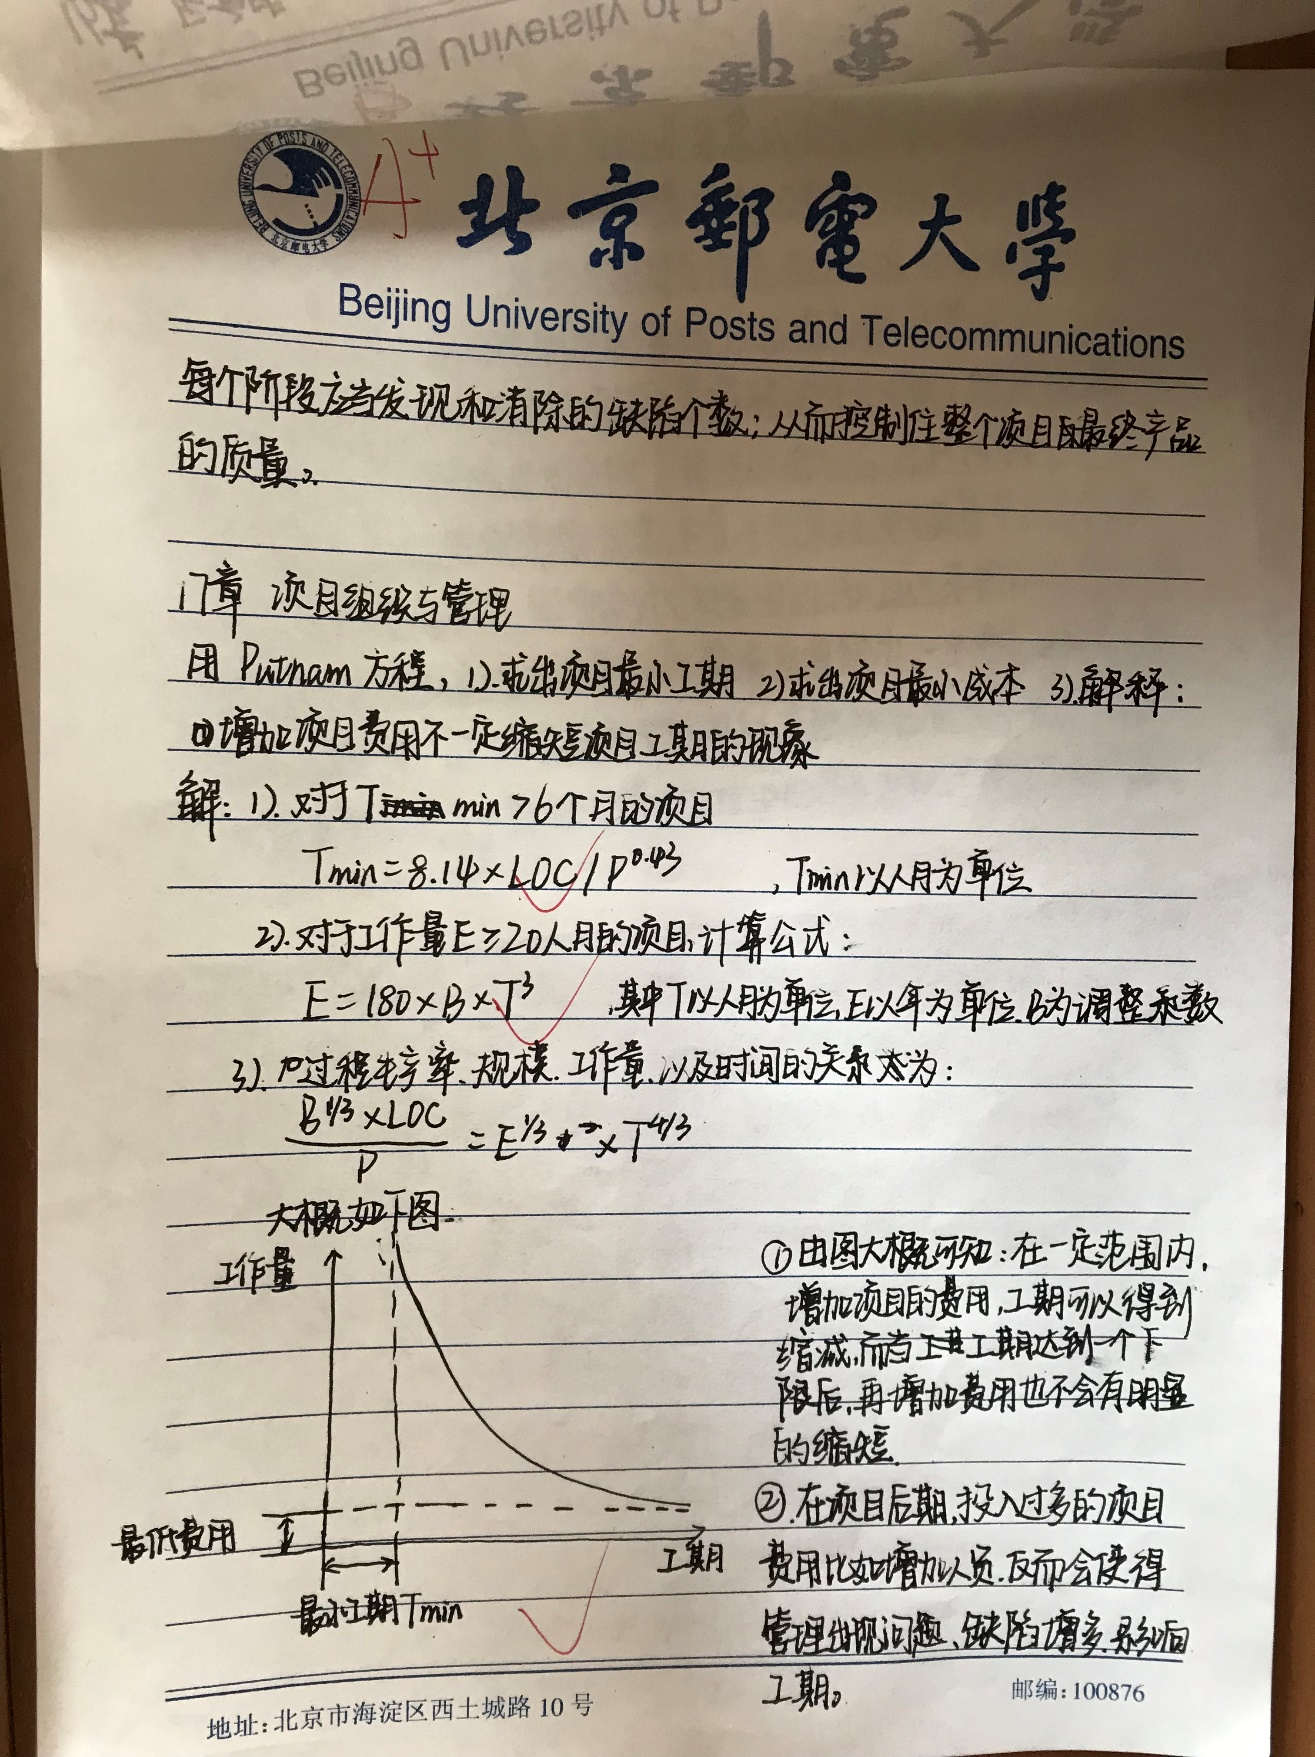 Beijing University of Po
A+
北京郵電大學
BEIJING UNIVERSITY OF POSTS AND TELECOMMUNICATIONS
北京邮电大学
Beijing University of Posts and Telecommunications
每个阶段应当发现和消除的缺陷个数；从而控制住整个项目及最终产品
的质量。
17章 项目组织与管理
用 Putnam 方程，1).求出项目最小工期 2)求出项目最小成本 3).解释：
①增加项目费用不一定缩短项目工期的现象
解：1). 对于T min >6个月的项目
Tmin=8.14×LOC/P^0.43 ，Tmin以人月为单位
2).对于工作量E≥20人月的项目,计算公式：
E=180×B×T^3 其中T以人月为单位,E以年为单位.B为调整系数
3). 过程生产率、规模、工作量、以及时间的关系式为：
B^1/3×LOC
/P = E^1/3 × T^4/3
大概如下图
工作量
最低费用
工期
最小工期Tmin
①由图大概可知：在一定范围内，
增加项目的费用,工期可以得到
缩减,而当工期达到一个下
限后,再增加费用也不会有明显
的缩短.
②.在项目后期,投入过多的项目
费用比如增加人员.反而会使得
管理出现问题、缺陷增多,影响
工期。
地址:北京市海淀区西土城路 10 号
邮编:100876